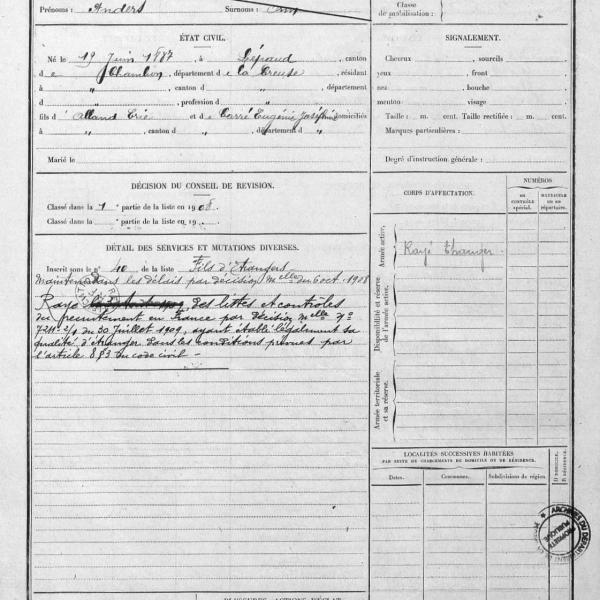 Prénoms : Anders
Surnoms :
Classe
de mobilisation :
ÉTAT CIVIL.
Né le 19 Juin 1887, à Lépaud, canton
de Chambon, département de la Creuse, résidant
à ", canton d ", département
d ", profession d
fils d' Alland Erie et de Carré Eugénie Joséphine domiciliés
à ", canton d ", département d "
Marié le
SIGNALEMENT.
Cheveux , sourcils
yeux , front
nez , bouche
menton , visage
Taille : m. cent. Taille rectifiée : m. cent.
Marques particulières :
Degré d'instruction générale :
DÉCISION DU CONSEIL DE REVISION.
Classé dans la 1e partie de la liste en 1908.
Classé dans la partie de la liste en 19 .
DÉTAIL DES SERVICES ET MUTATIONS DIVERSES.
Inscrit sous le n° 40 de la liste Fils d'étrangers
Maintenu dans les délais par décision Melle du 6 oct 1908
Rayé des listes et contrôles
du recrutement en France par décision Melle n°
7211-2/1 du 30 Juillet 1909, ayant établi légalement sa
qualité d'étranger dans les conditions prévues par
l'article 8 § 3 du code civil -
CORPS D'AFFECTATION.
NUMÉROS
AU CONTRÔLE spécial.
MATRICULE OU AU répertoire.
Armée active.
Rayé étranger
Disponibilité et réserve
de l'armée active.
Armée territoriale
et sa réserve.
LOCALITÉS SUCCESSIVES HABITÉES
PAR SUITE DE CHANGEMENTS DE DOMICILE OU DE RÉSIDENCE.
Dates.
Communes.
Subdivisions de région.
D DOMICILE.
R RÉSIDENCE.
ARCHIVES DU DÉPARTEMENT
PROPRIÉTÉ
PUBLIQUE